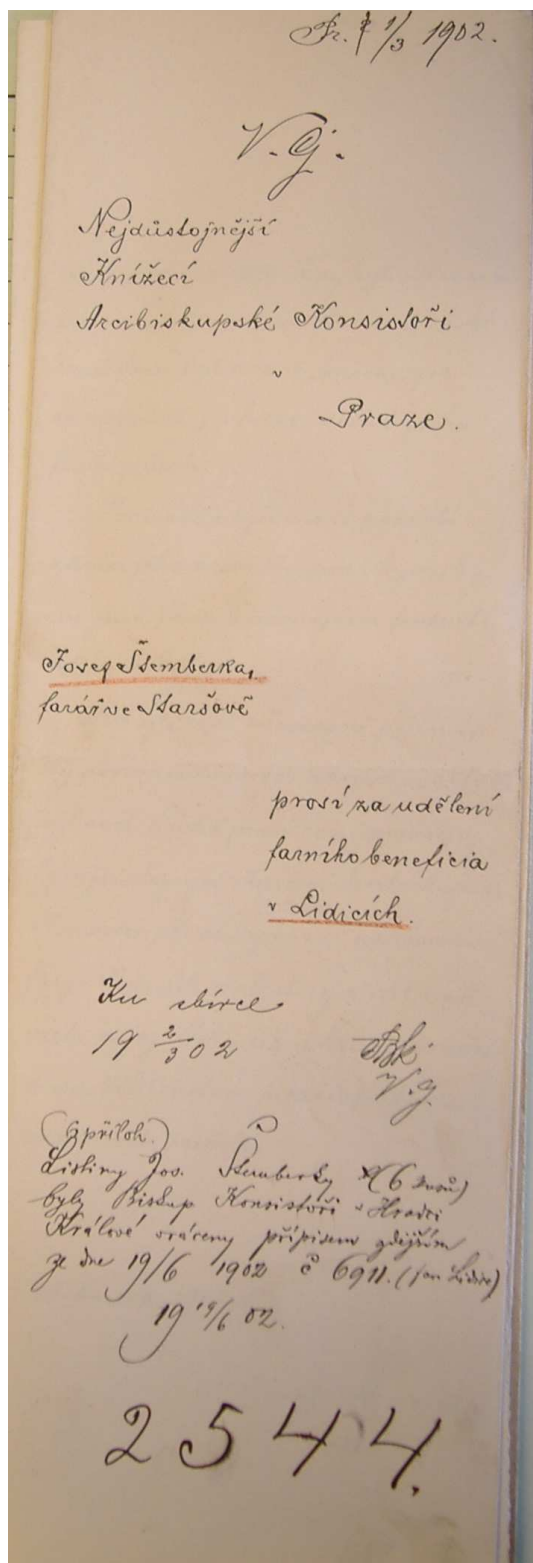 Pr. 1/3 1902.
V. G.
Nejdůstojnější
Knížecí
Arcibiskupské Konsistoři
v
Praze.
Josef Štemberka,
farář ve Staršově
prosí za udělení
farního beneficia
v Lidicích.
Ku sbírce
19 2/3 02
V. G.
(příloh.)
Listiny Jos. Štemberky (6 kusů)
byly Biskup Konsistoři v Hradci
Králové vráceny přípisem zdejším
ze dne 19/6 1902 č 6911. (fara Lidice)
19 19/6 02.
2544.